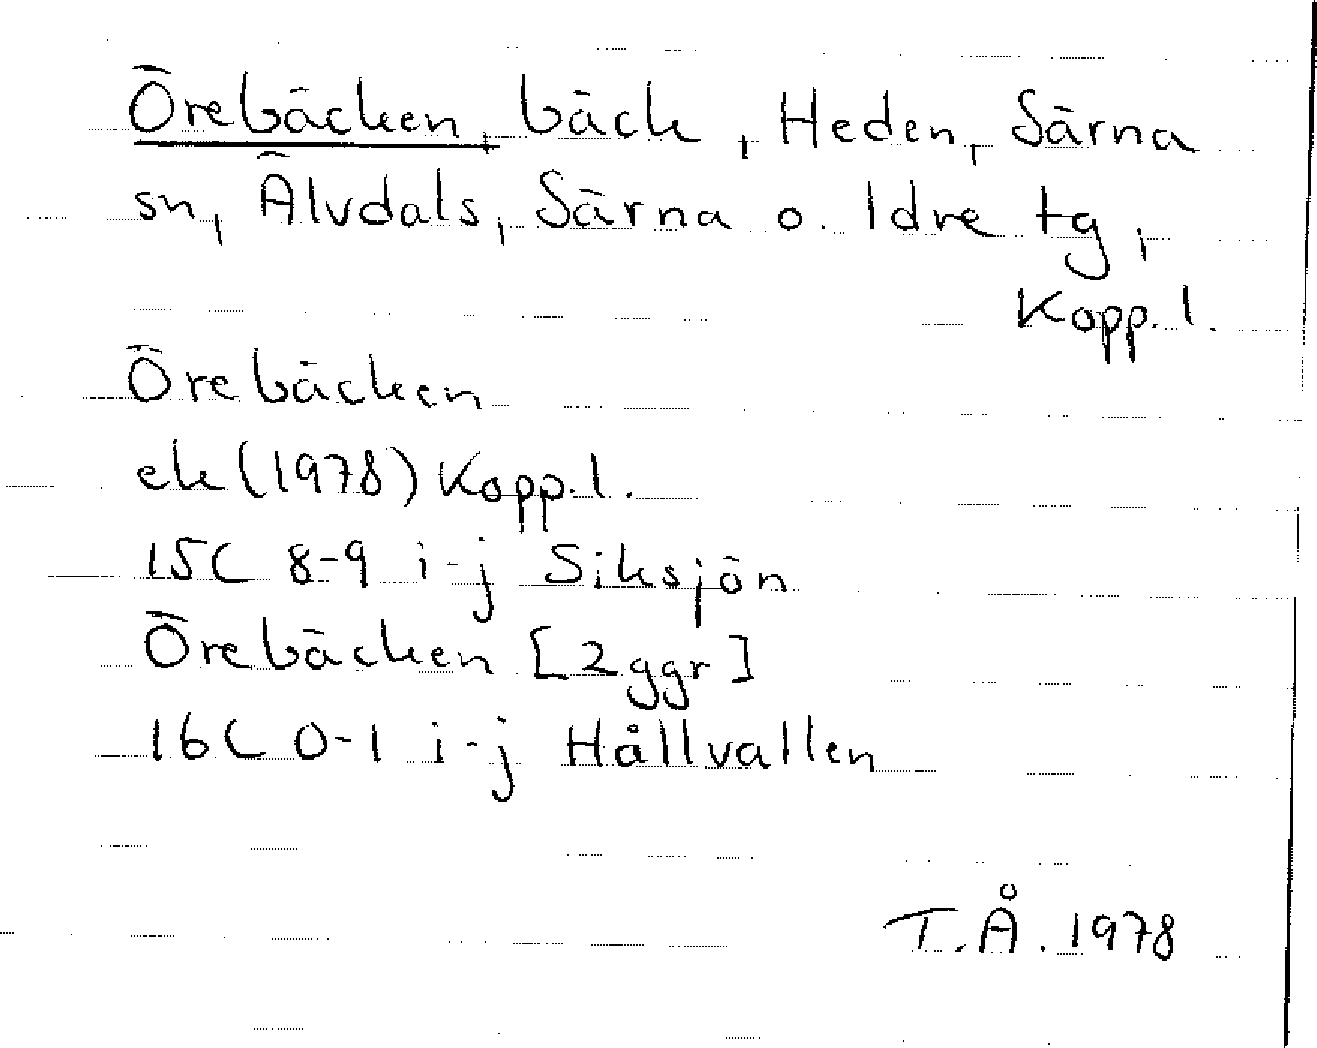 Örebäcken, bäck, Heden, Särna
sn, Älvdals, Särna o. Idre tg,
Kopp. l.
Örebäcken
ek (1978) Kopp. l.
15C 8-9 i-j Siksjön
Örebäcken [2 ggr]
16C 0-1 i-j Hållvallen
T.Å. 1978